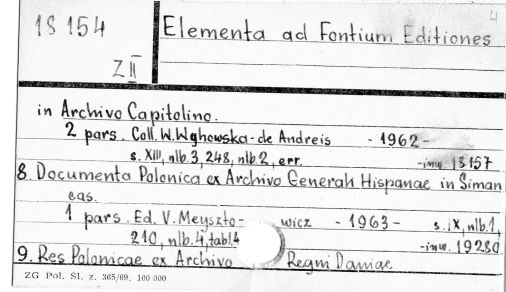 4
18 154
Elementa ad Fontium Editiones
Z II
in Archivo Capitolino.
2 pars. Coll. W. Wyhowska - de Andreis - 1962 -
s. XIII, nlb. 3, 248, nlb 2, err. - inw. 18157
8. Documenta Polonica ex Archivo Generali Hispaniae in Siman
cas.
1 pars. Ed. V. Meyszto- wicz - 1963 - s. IX, nlb. 1,
210, nlb. 4, tabl. 4 - inw. 19280
9. Res Polonicae ex Archivo Regni Daniae
ZG Pol. Sl. z. 365/69. 100 000